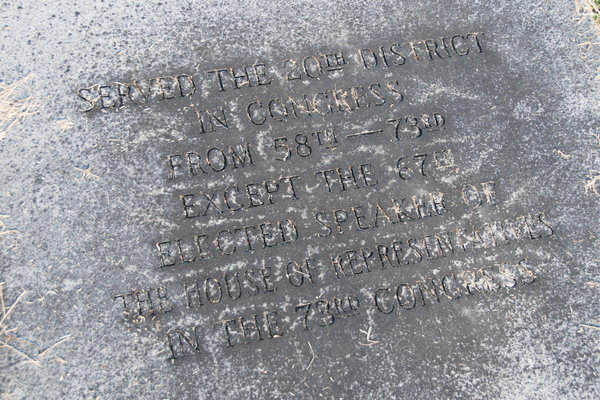 SERVED THE 20TH DISTRICT
IN CONGRESS
FROM 58TH — 73RD
EXCEPT THE 67TH
ELECTED SPEAKER OF
THE HOUSE OF REPRESENTATIVES
IN THE 73RD CONGRESS